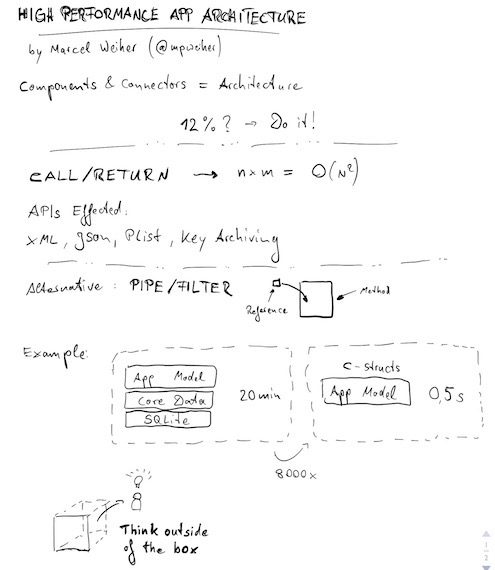 HIGH PERFORMANCE APP ARCHITECTURE
by Marcel Weiher (@mpweiher)
Components & Connectors = Architecture
12%? → Do it!
CALL/RETURN → n×m = O(N²)
APIs Effected:
XML, Json, PList, Key Archiving
Alternative: PIPE/FILTER
Reference
Method
Example:
App Model
Core Data
SQLite
20min
C-structs
App Model
0,5s
8000x
Think outside
of the box
1
2